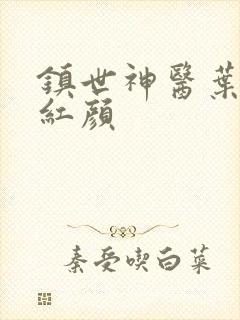 鎮世神醫葉
紅顏
秦受喫白菜